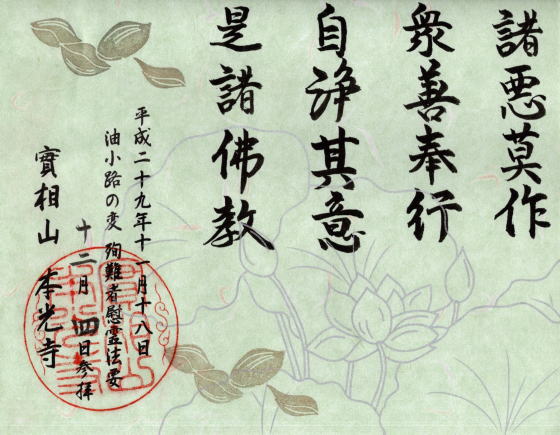 諸悪莫作
衆善奉行
自浄其意
是諸佛教
平成二十九年十一月十八日
油小路の変 殉難者慰霊法要
十二月四日参拝
實相山 本光寺